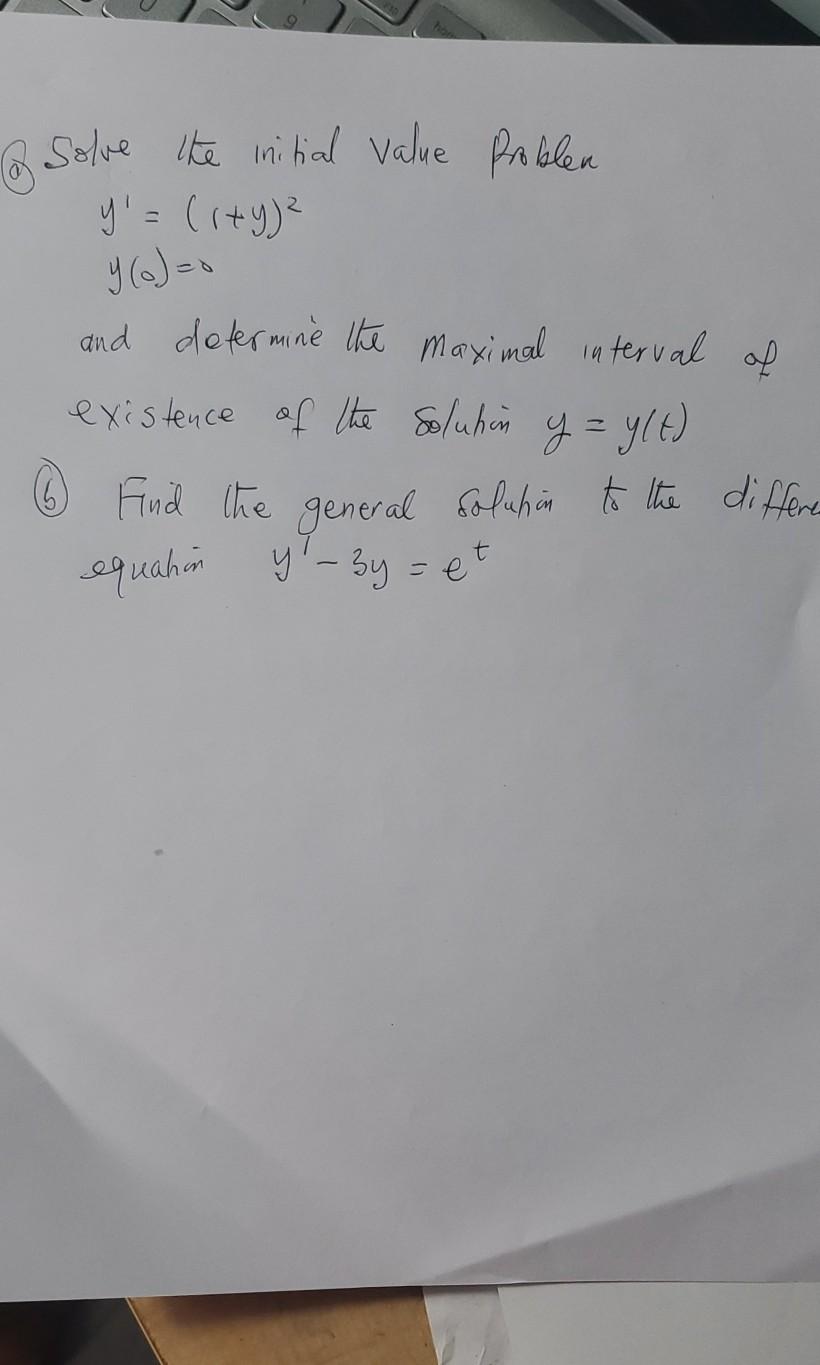 (a) Solve the initial value Problem
y' = (1+y)²
y(0)=0
and determine the maximal interval of
existence of the solution y = y(t)
(b) Find the general solution to the differe
equation y' - 3y = e^t